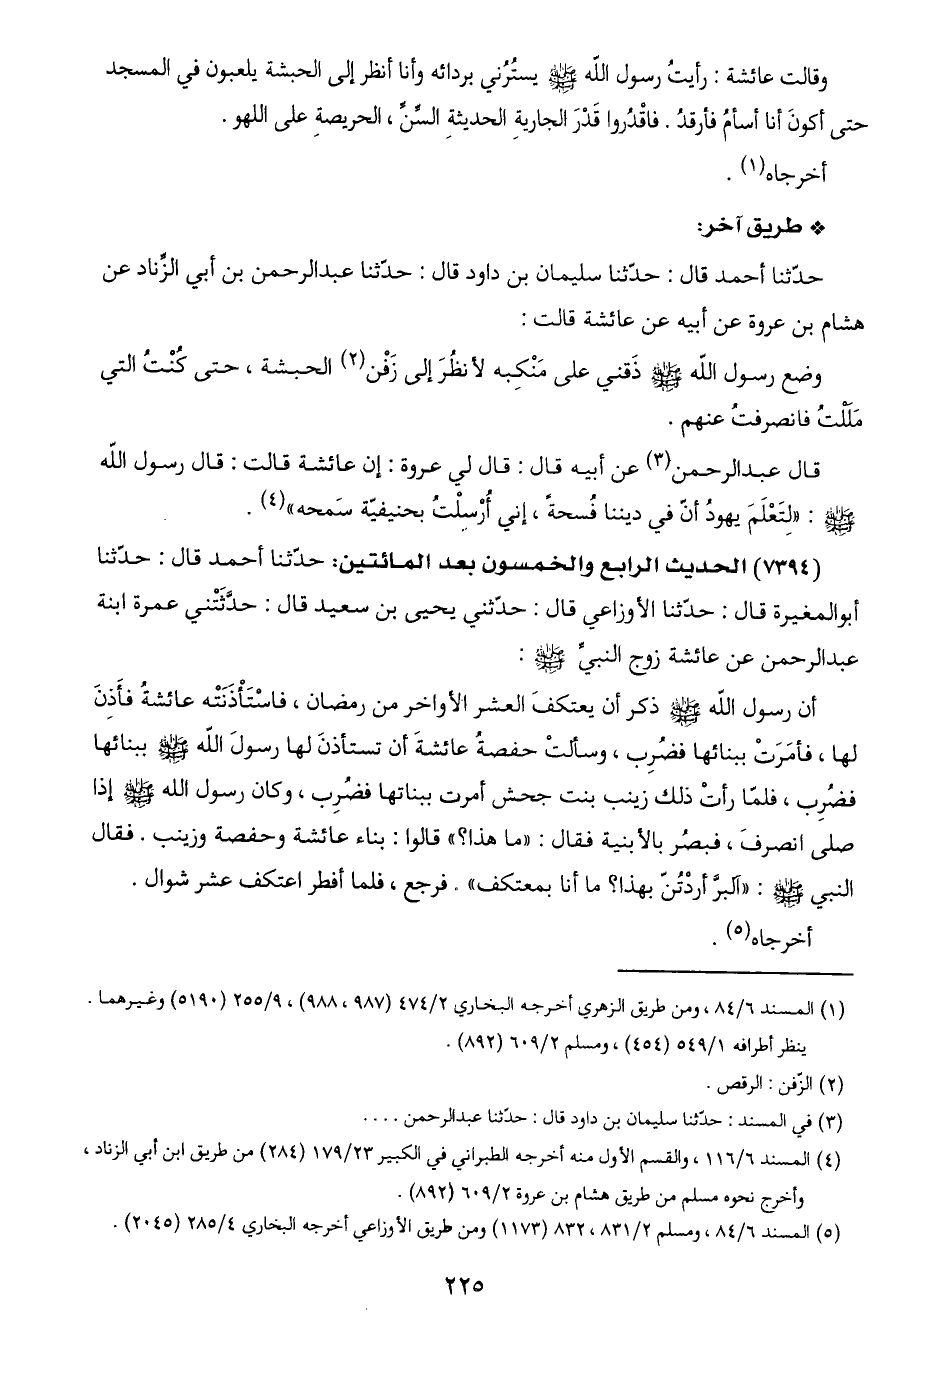 وقالت عائشة : رأيتُ رسول اللّه ﷺ يستُرُني بردائه وأنا أنظر إلى الحبشة يلعبون في المسجد
حتى أكونَ أنا أسأمُ فأرقدُ . فاقْدُروا قَدْرَ الجاريةِ الحديثةِ السِّنِّ ، الحريصةِ على اللهو .
أخرجاه(١) .
❖ طريق آخر:
حدّثنا أحمد قال : حدّثنا سليمان بن داود قال : حدّثنا عبدالرحمن بن أبي الزِّناد عن
هشام بن عروة عن أبيه عن عائشة قالت :
وضع رسول اللّه ﷺ ذَقني على مَنْكِبه لأنظُرَ إلى زَفْن(٢) الحبشة ، حتى كُنْتُ التي
مَلَلْتُ فانصرفتُ عنهم .
قال عبدالرحمن(٣) عن أبيه قال : قال لي عروة : إن عائشة قالت : قال رسول اللّه
ﷺ : «لِتَعْلَمَ يهودُ أنّ في ديننا فُسحةً ، إني أُرْسِلْتُ بحنيفيّة سَمحه»(٤) .
(٧٣٩٤) الحديث الرابع والخمسون بعد المائتين: حدّثنا أحمد قال : حدّثنا
أبوالمغيرة قال : حدّثنا الأوزاعي قال : حدّثني يحيى بن سعيد قال : حدَّثَتْني عمرة ابنة
عبدالرحمن عن عائشة زوج النبيِّ ﷺ :
أن رسول اللّه ﷺ ذكر أن يعتكفَ العشر الأواخر من رمضان ، فاسْتَأْذَنَتْه عائشةُ فأَذِنَ
لها ، فأمَرَتْ ببنائها فضُرِب ، وسألتْ حفصةُ عائشةَ أن تستأذنَ لها رسولَ اللّه ﷺ ببنائها
فضُرِب ، فلمّا رأتْ ذلك زينب بنت جحش أمرت ببنائها فضُرِب ، وكان رسول الله ﷺ إذا
صلى انصرفَ ، فبصُر بالأبنية فقال : «ما هذا؟» قالوا : بناء عائشة وحفصة وزينب . فقال
النبي ﷺ : «آلبرَّ أردْتُنّ بهذا؟ ما أنا بمعتكف» . فرجع ، فلما أفطر اعتكف عشر شوال .
أخرجاه(٥) .
(١) المسند ٨٤/٦ ، ومن طريق الزهري أخرجه البخاري ٤٧٤/٢ (٩٨٧ ، ٩٨٨) ، ٢٥٥/٩ (٥١٩٠) وغيرهما .
ينظر أطرافه ٥٤٩/١ (٤٥٤) ، ومسلم ٦٠٩/٢ (٨٩٢) .
(٢) الزّفن : الرقص .
(٣) في المسند : حدّثنا سليمان بن داود قال : حدّثنا عبدالرحمن ....
(٤) المسند ١١٦/٦ ، والقسم الأول منه أخرجه الطبراني في الكبير ١٧٩/٢٣ (٢٨٤) من طريق ابن أبي الزناد ،
وأخرج نحوه مسلم من طريق هشام بن عروة ٦٠٩/٢ (٨٩٢) .
(٥) المسند ٨٤/٦ ، ومسلم ٨٣١/٢ ، ٨٣٢ (١١٧٣) ومن طريق الأوزاعي أخرجه البخاري ٢٨٥/٤ (٢٠٤٥) .
٢٢٥